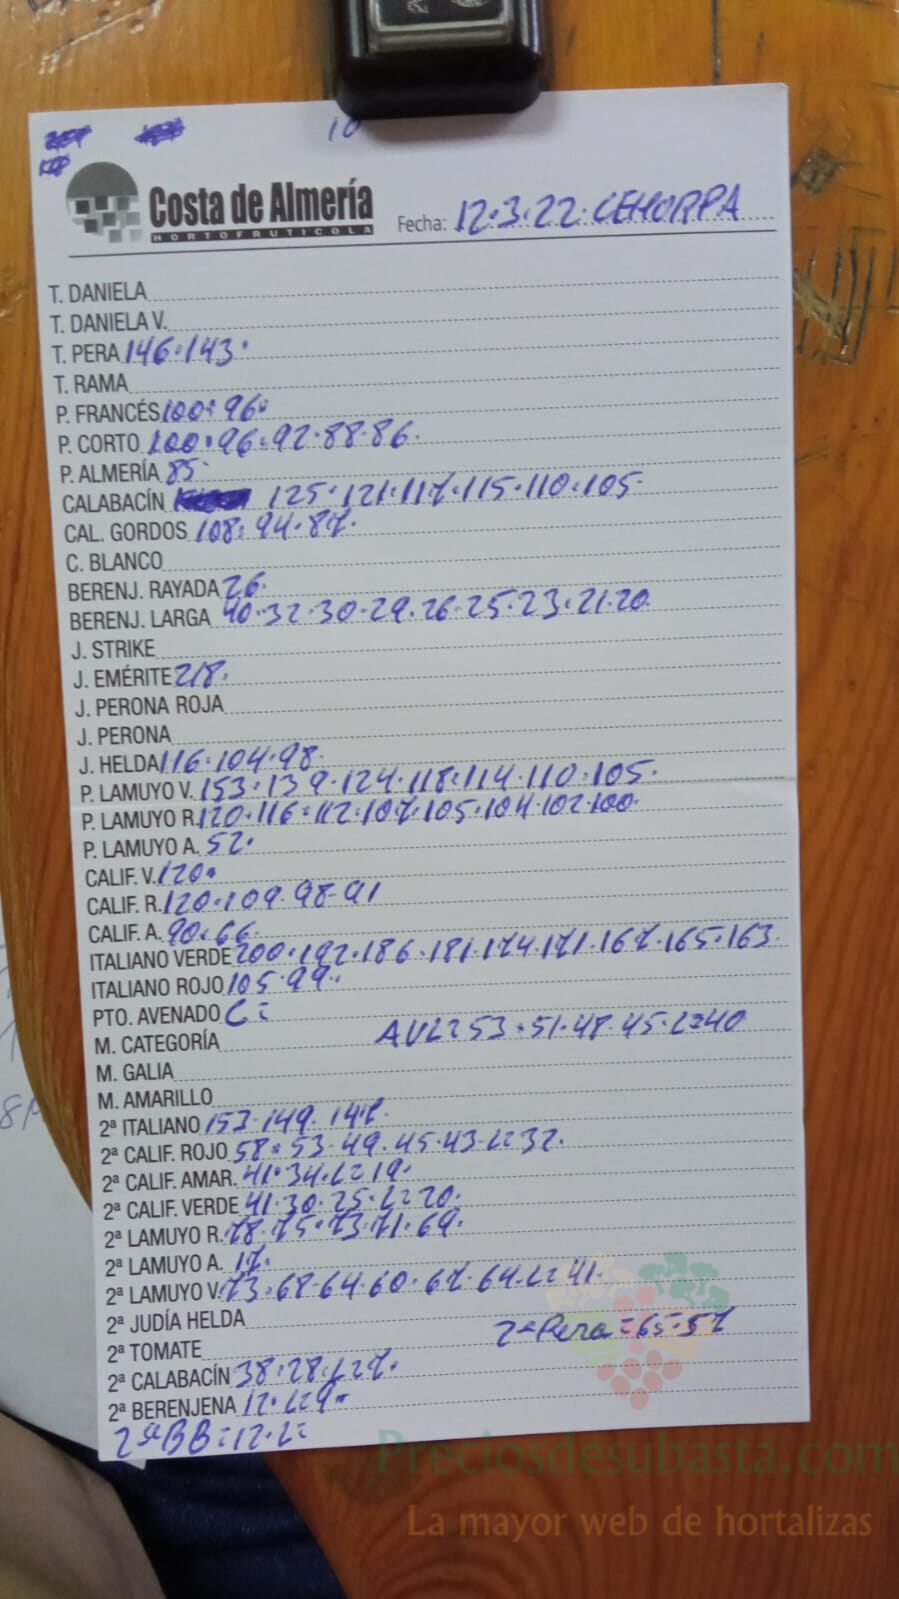 10
Costa de Almería
HORTOFRUTICOLA
Fecha: 12.3.22. CEHORPA
T. DANIELA
T. DANIELA V.
T. PERA 146.143.
T. RAMA
P. FRANCÉS 100.96.
P. CORTO 100.96.92.88.86.
P. ALMERÍA 85.
CALABACÍN 125.121.117.115.110.105.
CAL. GORDOS 108.94.87.
C. BLANCO
BERENJ. RAYADA 26.
BERENJ. LARGA 40.32.30.29.26.25.23.21.20.
J. STRIKE
J. EMÉRITE 218.
J. PERONA ROJA
J. PERONA
J. HELDA 116.104.98.
P. LAMUYO V. 153.139.124.118.114.110.105.
P. LAMUYO R. 120.116.112.107.105.104.102.100.
P. LAMUYO A. 52.
CALIF. V. 120.
CALIF. R. 120.109.98.91
CALIF. A. 90.66.
ITALIANO VERDE 200.192.186.181.174.171.167.165.163.
ITALIANO ROJO 105.99.
PTO. AVENADO C=
M. CATEGORÍA AVL=53.51.48.45.L=40
M. GALIA
M. AMARILLO
2ª ITALIANO 153.149.147.
2ª CALIF. ROJO 58.53.49.45.43.L=32.
2ª CALIF. AMAR. 41.34.L=19.
2ª CALIF. VERDE 41.30.25.L=20.
2ª LAMUYO R. 78.75.73.71.69.
2ª LAMUYO A. 17.
2ª LAMUYO V. 73.68.64.60.67.64.L=41.
2ª JUDÍA HELDA
2ª Pera=65.57
2ª TOMATE
2ª CALABACÍN 38.28.L27.
2ª BERENJENA 12.L=9.
2ª BB=12.L=
Preciosdesubasta.com
La mayor web de hortalizas